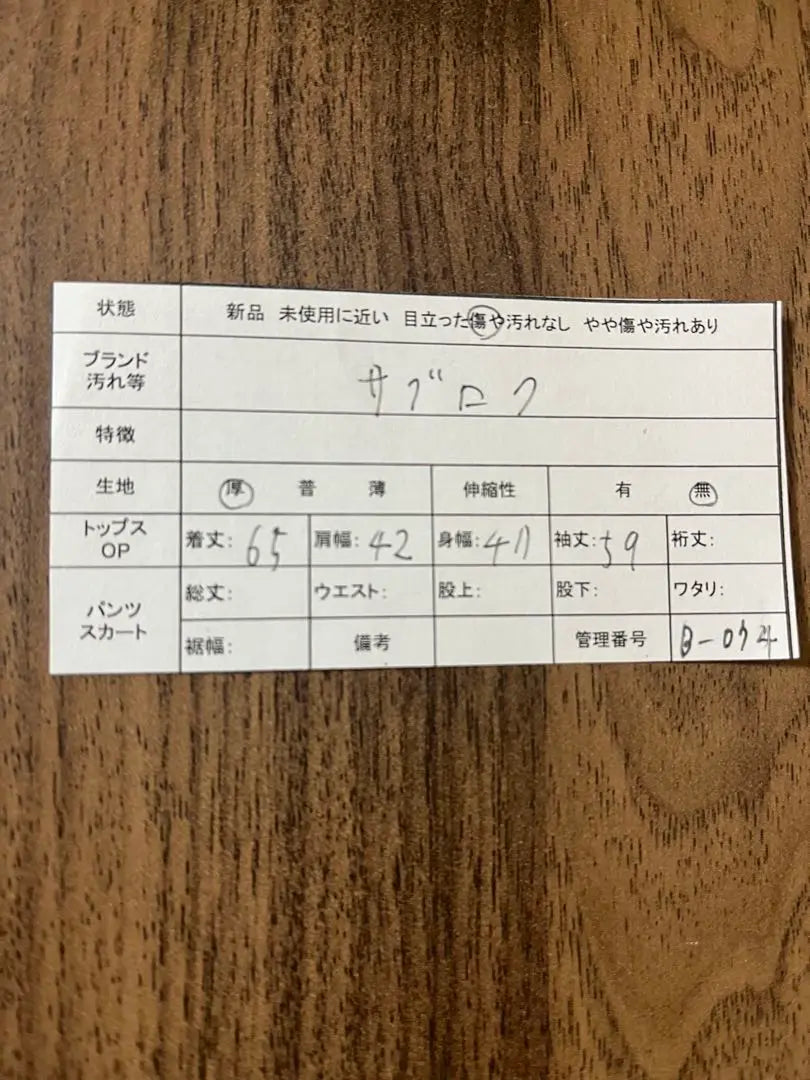 状態 新品 未使用に近い 目立った傷や汚れなし やや傷や汚れあり
ブランド
汚れ等
サブロク
特徴
生地 厚 普 薄 伸縮性 有 無
トップス
OP
着丈: 65 肩幅: 42 身幅: 袖丈: 59 裄丈:
パンツ
スカート
総丈: ウエスト: 股上: 股下: ワタリ:
裾幅: 備考 管理番号 B-074